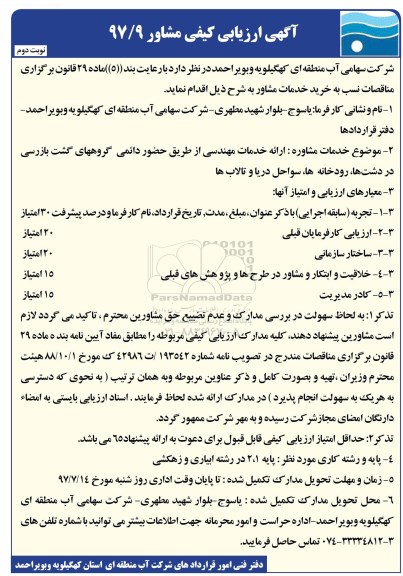 آگهی ارزیابی کیفی مشاور ۹۷/۹
نوبت دوم
شرکت سهامی آب منطقه ای کهگیلویه وبویراحمد در نظر دارد با رعایت بند ((۵))ماده ۲۹ قانون برگزاری
مناقصات نسب به خرید خدمات مشاور به شرح ذیل اقدام نماید.
۱-نام و نشانی کارفرما: یاسوج-بلوار شهید مطهری-شرکت سهامی آب منطقه ای کهگیلویه وبویراحمد-
دفتر قراردادها
۲- موضوع خدمات مشاوره : ارائه خدمات مهندسی از طریق حضور دائمی گروههای گشت بازرسی
در دشت‌ها، رودخانه ها، سواحل دریا و تالاب ها
۳- معیارهای ارزیابی و امتیاز آنها:
۳-۱- تجربه (سابقه اجرایی) با ذکر عنوان ، مبلغ ، مدت، تاریخ قرارداد، نام کارفرما و درصد پیشرفت ۳۰امتیاز
۳-۲-ارزیابی کارفرمایان قبلی ۲۰ امتیاز
۳-۳-ساختار سازمانی ۲۰امتیاز
۳-۴- خلاقیت و ابتکار و مشاور در طرح ها و پژوهش های قبلی ۱۵ امتیاز
۳-۵- کادر مدیریت ۱۵ امتیاز
تذکر۱: به لحاظ سهولت در بررسی مدارک و عدم تضییع حق مشاورین محترم ، تاکید می گردد لازم
است مشاورین پیشنهاد دهند، کلیه مدارک ارزیابی کیفی مربوطه را مطابق مفاد آیین نامه بند ه ماده ۲۹
قانون برگزاری مناقصات مندرج در تصویب نامه شماره ۱۹۳۵۴۲ /ت ۴۲۹۸۶ ک مورخ ۸۸/۱۰/۱ هیئت
محترم وزیران ،تهیه و بصورت کامل و ذکر عناوین مربوطه وبه همان ترتیب ( به نحوی که دسترسی
به هریک به سهولت انجام پذیرد ) در مدارک ارائه شده لحاظ فرمایند . اسناد ارزیابی بایستی به امضاء
دارنگان امضای مجاز شرکت رسیده و به مهر شرکت ممهور گردد.
تذکر۲: حداقل امتیاز ارزیابی کیفی قابل قبول برای دعوت به ارائه پیشنهاد۶۵ می باشد.
۴- پایه و رشته کاری مورد نظر : پایه ۲،۱ در رشته ابیاری و زهکشی
۵- زمان و مهلت تحویل مدارک تکمیل شده : تا پایان وقت اداری روز شنبه مورخ ۹۷/۷/۱۴
۶- محل تحویل مدارک تکمیل شده : یاسوج-بلوار شهید مطهری- شرکت سهامی آب منطقه ای
کهگیلویه وبویراحمد-اداره حراست و امور محرمانه جهت اطلاعات بیشتر می توانید با شماره تلفن های
۳-۳۳۳۳۴۸۱۲-۰۷۴ تماس حاصل فرمایید.
دفتر فنی امور قرارداد های شرکت آب منطقه ای استان کهگیلویه وبویراحمد
ParsNamadData